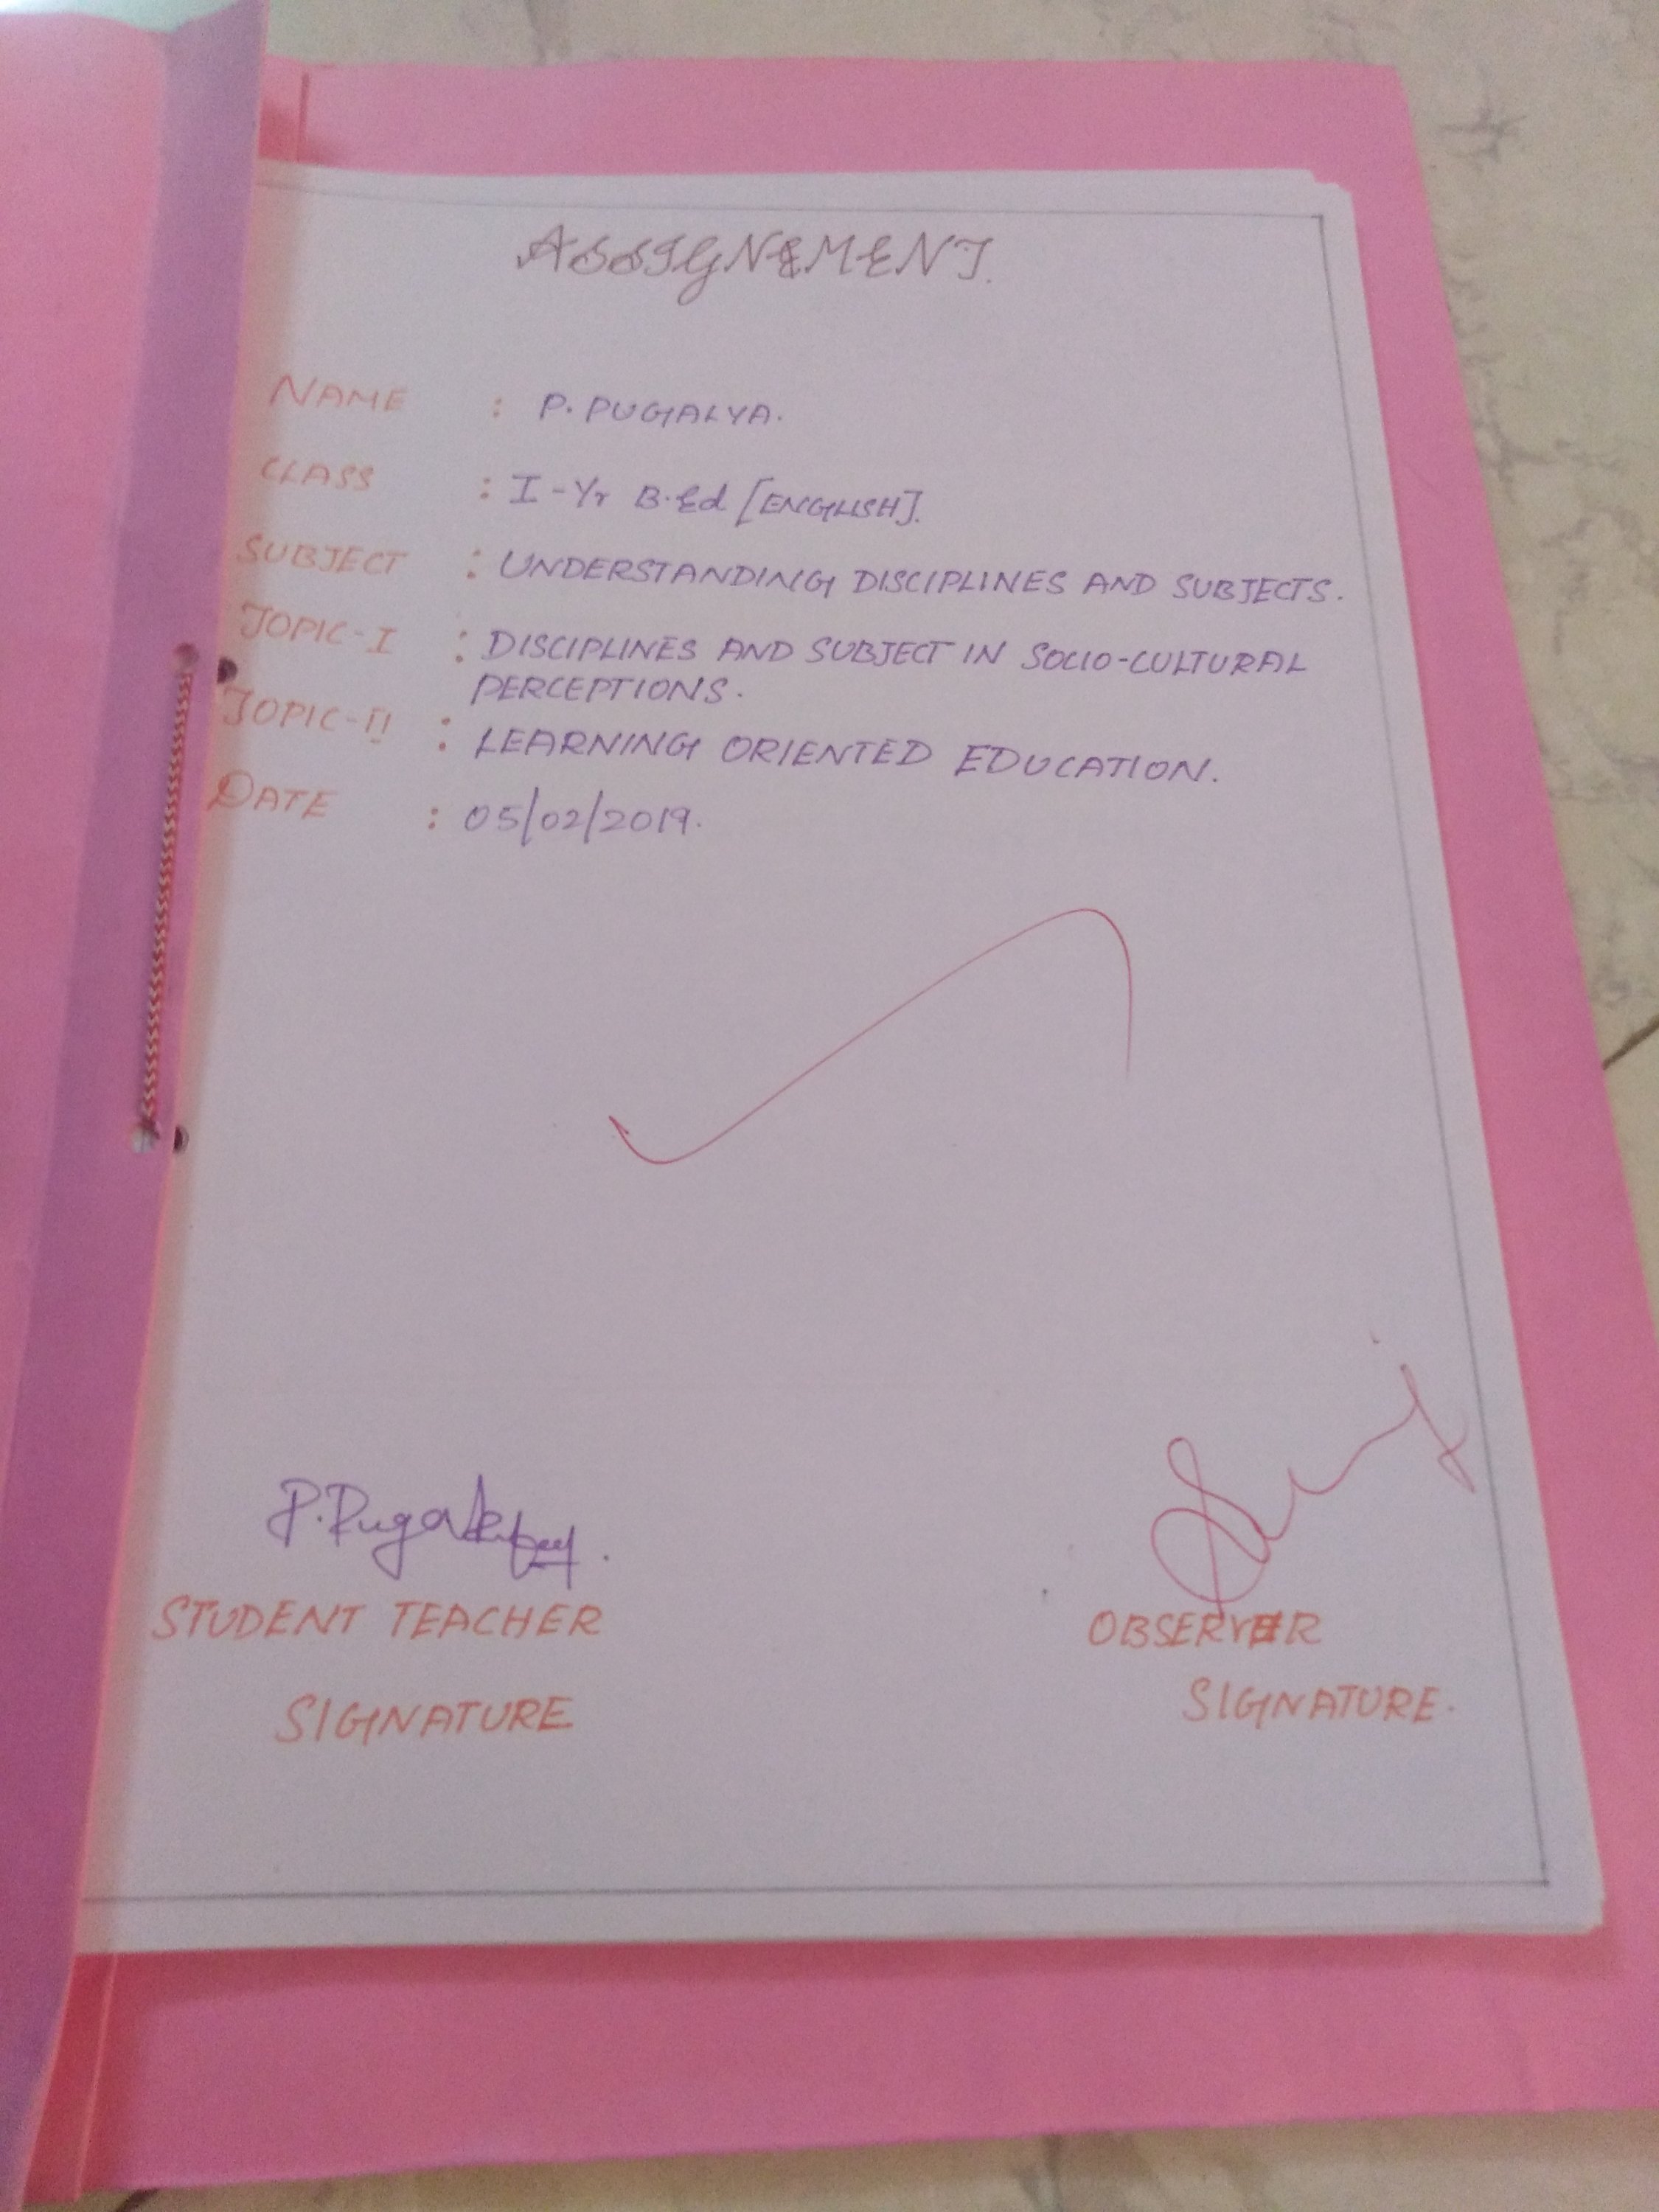 ASSIGNEMENT.
NAME : P. PUGALYA.
CLASS : I-Yr B.Ed [ENGLISH].
SUBJECT : UNDERSTANDING DISCIPLINES AND SUBJECTS.
TOPIC-I : DISCIPLINES AND SUBJECT IN SOCIO-CULTURAL
PERCEPTIONS.
TOPIC-II : LEARNING ORIENTED EDUCATION.
DATE : 05/02/2019.
STUDENT TEACHER
SIGNATURE
OBSERVER
SIGNATURE.